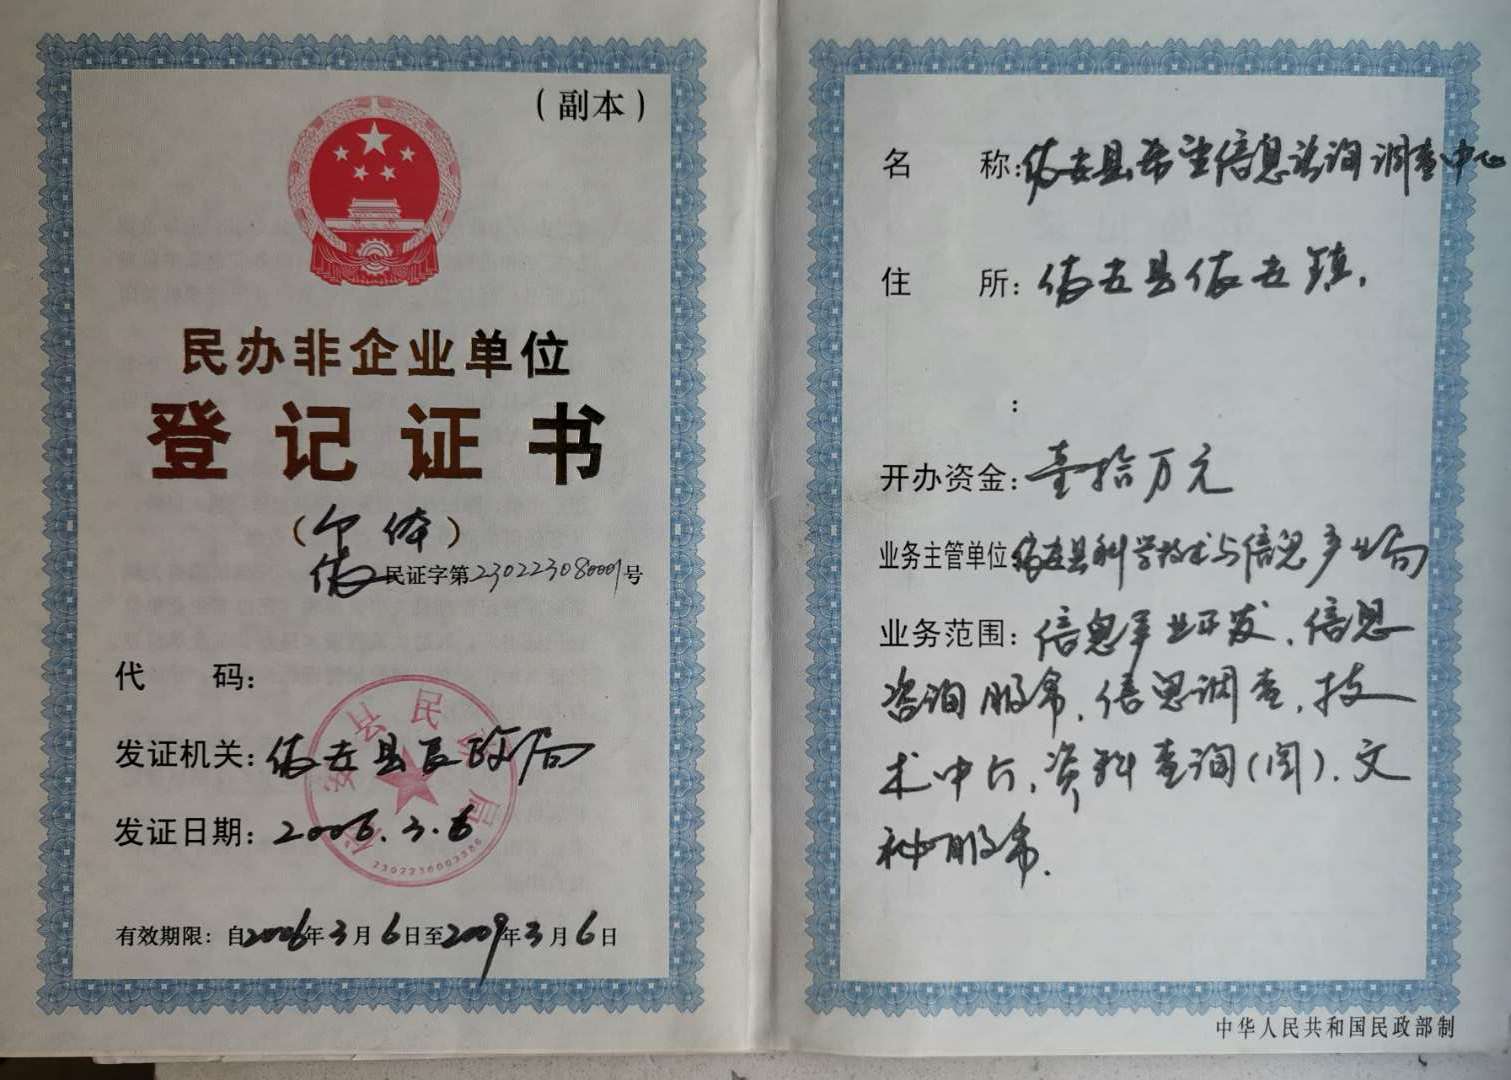 （副本）
民办非企业单位
登记证书
（个体）
依民证字第230223080001号
代 码：
发证机关：依安县民政局
发证日期：2006.3.6
有效期限：自2006年3月6日至2009年3月6日
县民
局
2302230003386
名 称：依安县希望信息咨询调查中心
住 所：依安县依安镇.
：
开办资金：壹拾万元
业务主管单位依安县科学技术与信息产业局
业务范围：信息产业开发、信息
咨询服务、信息调查、技
术中介、资料查询（阅）、文
印服务.
中华人民共和国民政部制